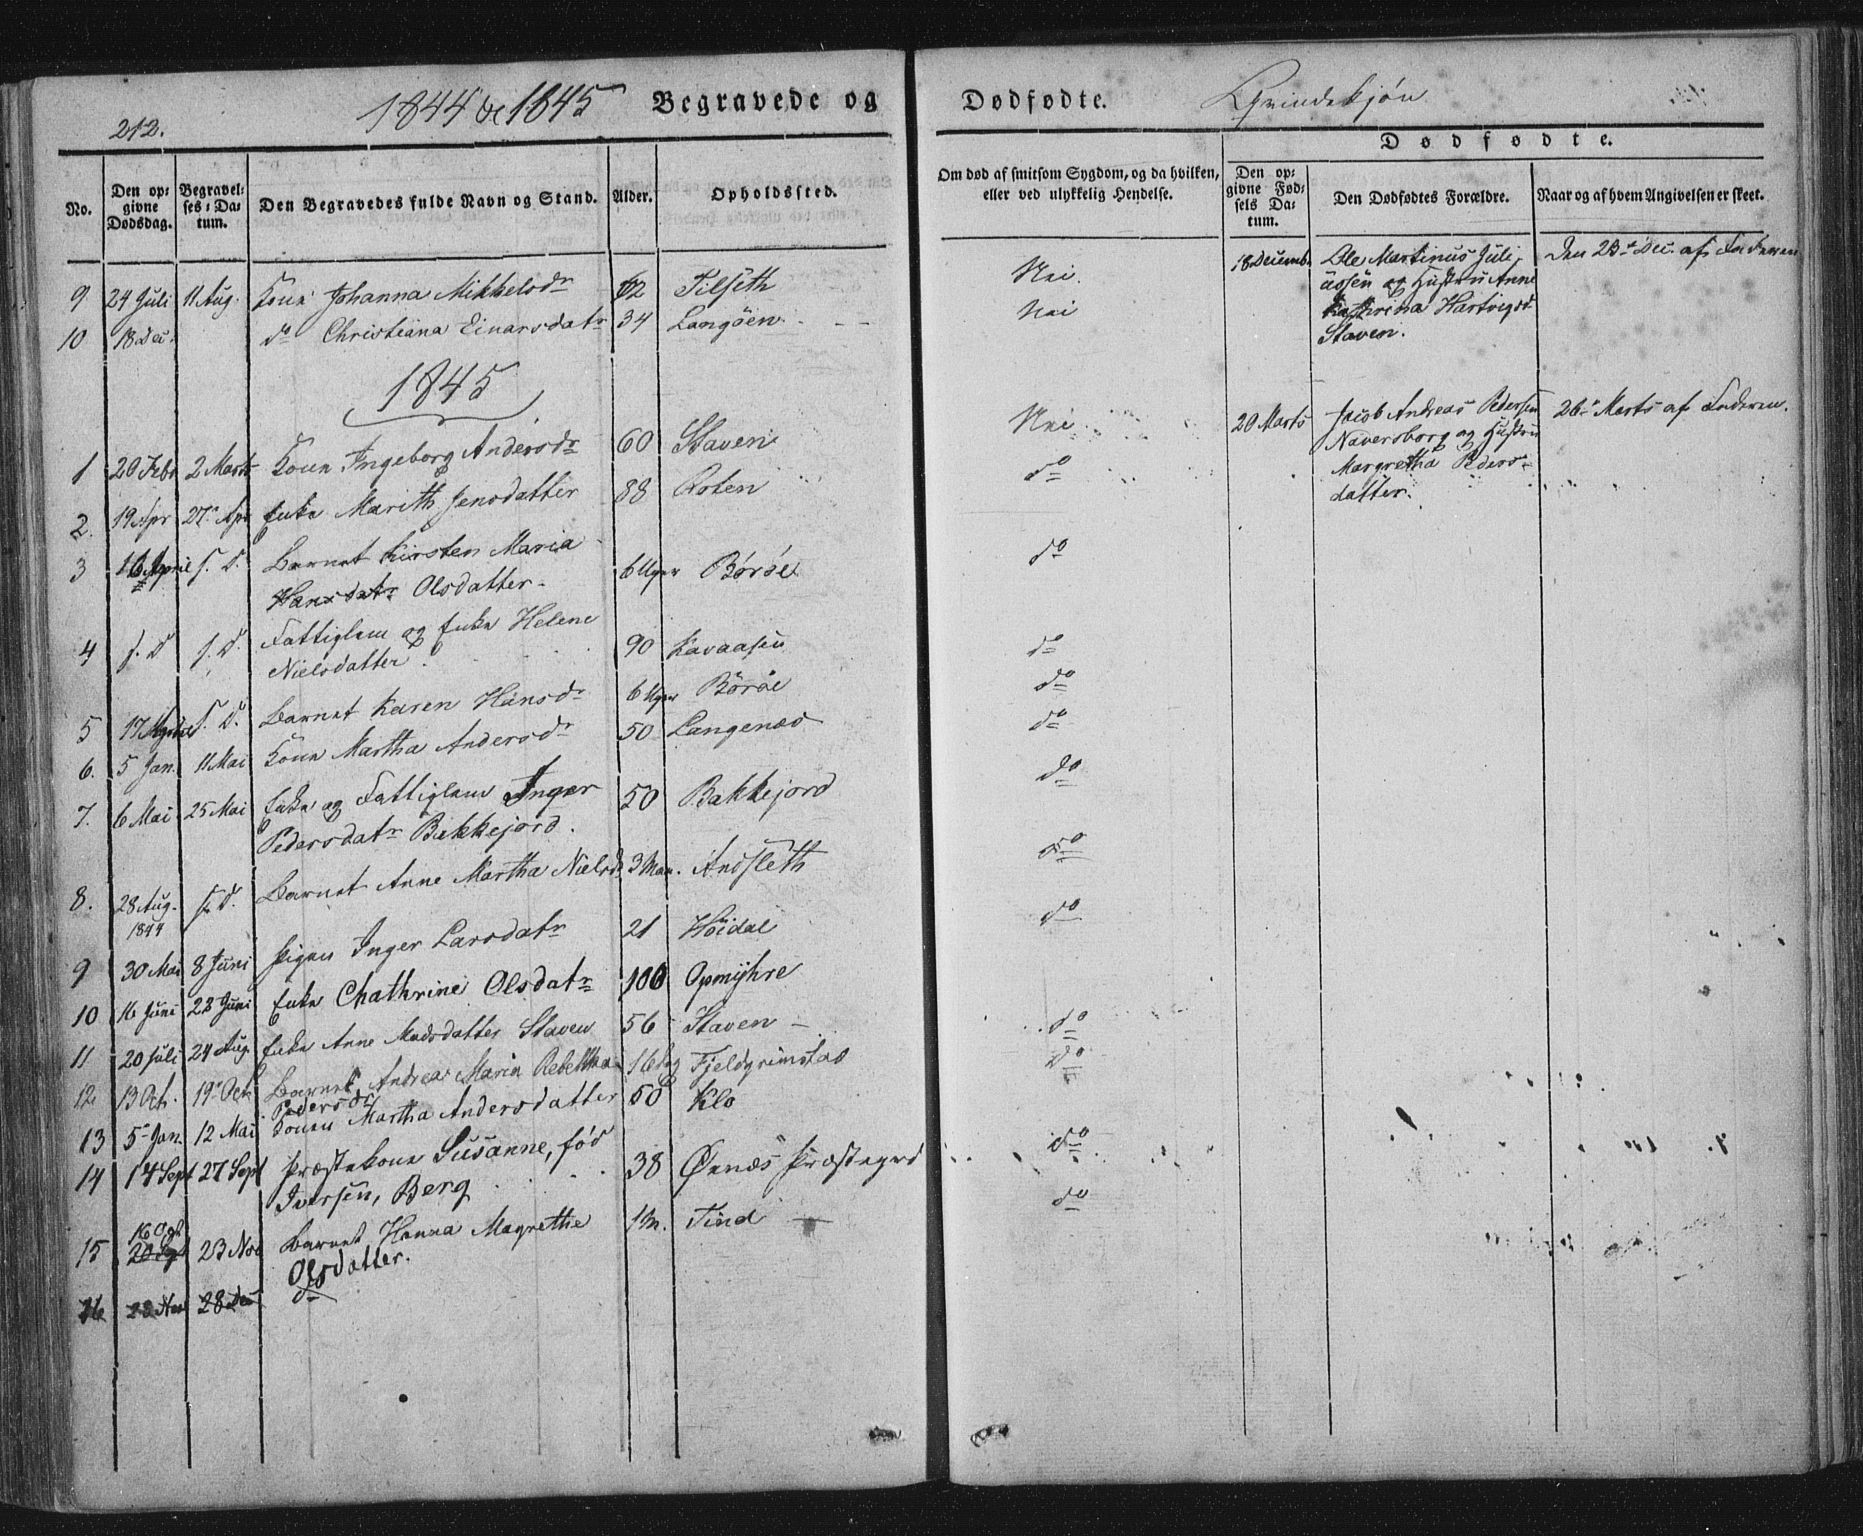 212.
1844 & 1845 Begravede og
Dødfødte. Qvindekjøn
No.
Den opgivne Dødsdag.
Begravelses-Datum.
Den Begravedes fulde Navn og Stand.
Alder.
Opholdssted.
Om død af smitsom Sygdom, og da hvilken,
eller ved ulykkelig Hendelse.
Dødfødte.
Den opgivne Fødsels Datum.
Den Dødfødtes Forældre.
Naar og af hvem Angivelsen er skeet.
9 24 Juli 11 Aug. Kone Johanna Mikkelsdr 62 Tilseth Nei.
10 18 Dec. do Christiana Einarsdatr 34 Langöen Nei
18 Decemb. Ole Martinus Juli- Den 23de Dec. af Faderen
ussen og Hustru Anne
Kathrina Hartvigsd
Staven.
1845
1 20 Febr 2 Marts Kone Ingeborg Andersdr 60 Staven Nei
2. 19 Apr 27de Apr Enke Marith Jensdatter 88 Roten do
20 Marts Jacob Andreas Pedersen 26de Marts af Faderen.
Naversborg og Hustru
Margretha Peders-
datter.
3 16 April s. D. Barnet Kirsten Maria 6 Uger Böröe do
Hansdatr Olsdatter.
4 s. D s. D. Fattiglem og Enke Helene 90 Kavaasen do
Nielsdatter.
5 17 s. D. Barnet Karen Hansdr 6 Uger Böröe do
6. 5 Jan. 11 Mai Kone Martha Andersdr 50 Langenæs do
7. 6 Mai 25 Mai Enke og Fattiglem Inger 50 Bakkejord do
Pedersdatr Bakkejord.
8. 28 Aug. s. D. Barnet Anne Martha Nielsd 3 Maan. Andsleth do
1844
9 30 Mai 8 Juni Pigen Inger Larsdatr 21 Höidal do
10 16 Juni 22 Juni Enke Chathrine Olsdatr 100 Opmyhre
11 20 Juli 24 Aug. Enke Anne Madsdatter Staven 56 Staven do
12 13 Oct. 19de Oct. Barnet Andrea Maria Rebekka 16 Fjeldgrimstad do
Pedersdr
13 5te Jan. 12 Mai Konen Martha Andersdatter 50 Klo
14 14 Sept 27 Sept Præstekone Susanne, fød 38 Öxnæs Præstegrd do
Iversen, Berg
16
15 20 23 Nov Barnet Hanna Magrethe 1 m. Tind do
Olsdatter.
16 23 Nov 28 Dec do